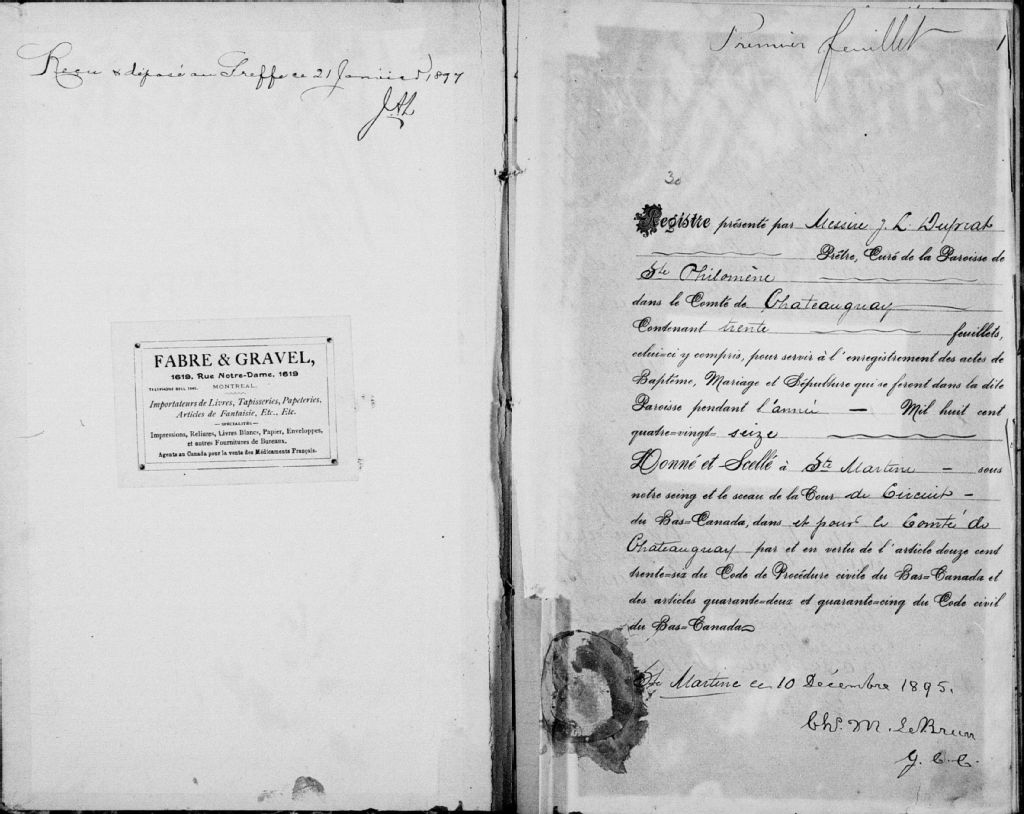 Recu & déposé au Greffe ce 21 Janvier 1897
JAL
FABRE & GRAVEL,
1619, Rue Notre-Dame, 1619
TELEPHONE BELL
MONTREAL.
Importateurs de Livres, Tapisseries, Papeteries,
Articles de Fantaisie, Etc., Etc.
— SPÉCIALITÉS —
Impressions, Reliures, Livres Blancs, Papier, Enveloppes,
et autres Fournitures de Bureaux.
Agents au Canada pour la vente des Médicaments Français.
Premier feuillet 1
30
Registre présenté par Messire J. L. Duprat
Prêtre, Curé de la Paroisse de
Ste Philomène
dans le Comté de Chateauguay
Contenant trente feuillets,
celui=ci y compris, pour servir à l'enregistrement des actes de
Baptême, Mariage et Sépulture qui se feront dans la dite
Paroisse pendant l'année — Mil huit cent
quatre=vingt= seize
Donné et Scellé à Ste Martine — sous
notre seing et le sceau de la Cour de Circuit —
du Bas=Canada, dans et pour le Comté de
Chateauguay par et en vertu de l'article douze cent
trente=six du Code de Procédure civile du Bas=Canada et
des articles quarante=deux et quarante=cinq du Code civil
du Bas=Canada
Ste Martine ce 10 Décembre 1895.
Chs. M. LeBrun
G. C. C.